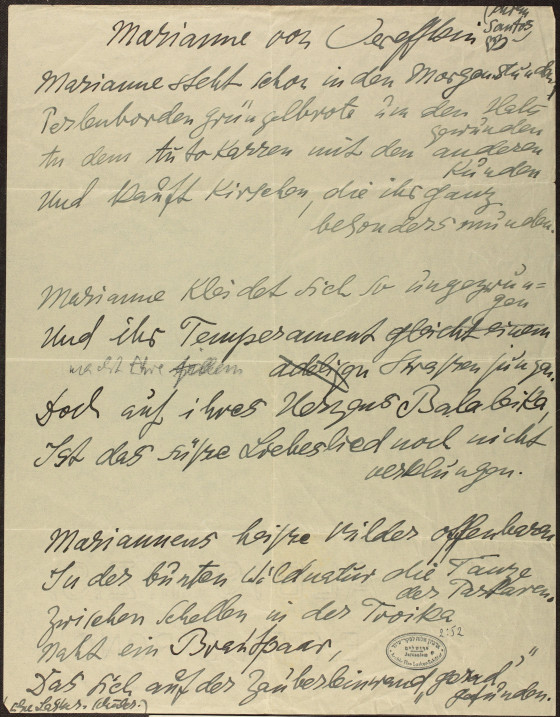 Marianne von Werefkin
Marianne steht schon in den Morgenstunden,
Perlenborden grüngelbrote um den Hals
gewunden
An dem Autokarren mit den anderen
Kunden
Und kauft Kirschen, die ihr ganz
besonders munden.
Marianne kleidet sich so ungezwun-
gen
Und ihr Temperament gleicht einem
macht Ehre allem adeligen Strassenjungen.
Doch auf ihres Herzens Balaleika,
Ist das süsse Liebeslied noch nicht
verklungen.
Mariannens heisse Bilder offenbaren
In der bunten Wildnatur die Tänze
der Tartaren.
Zwischen Schellen in der Troika
Naht ein Brautpaar,
2:52
Das sich auf der Zauberleinwand „gerad"
gefunden.